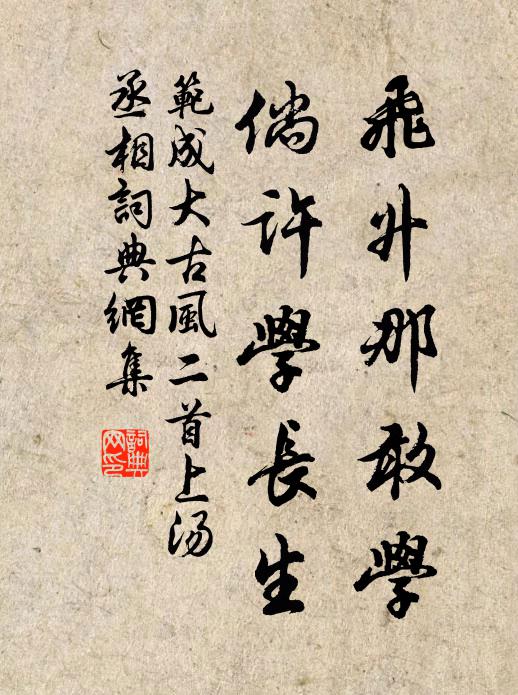 飛升那敢學
倘許學長生
範成大古風二首上湯
丞相詞典網集
詞典
网印